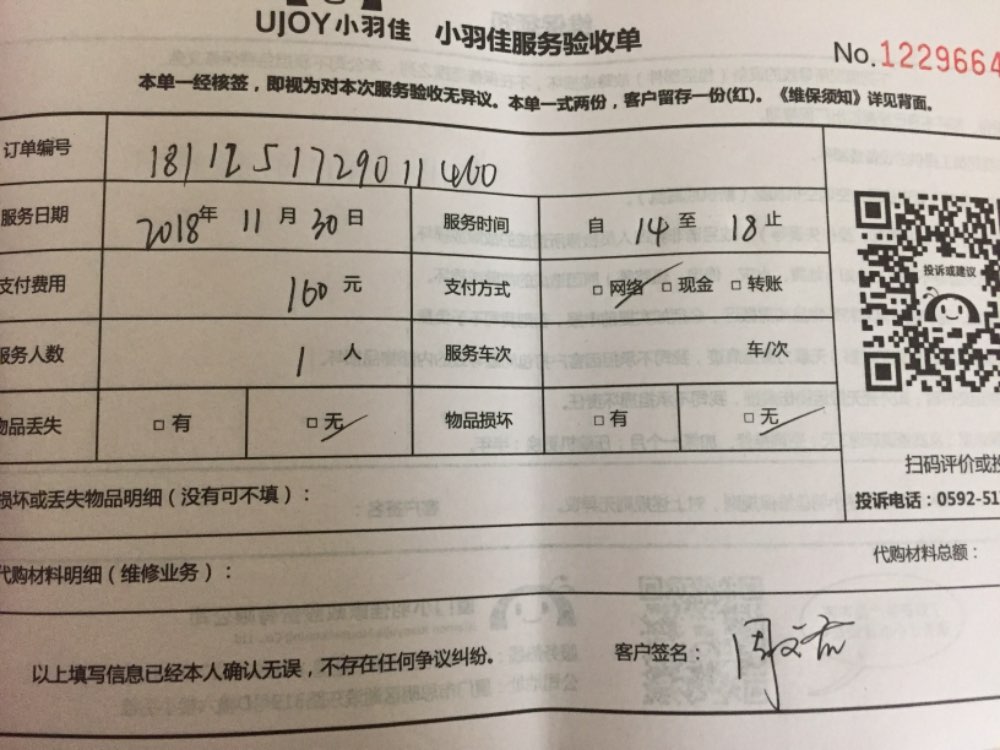 UJOY小羽佳 小羽佳服务验收单
No.1229664
本单一经核签，即视为对本次服务验收无异议。本单一式两份，客户留存一份(红)。《维保须知》详见背面。
订单编号 1811251729011460
服务日期 2018年 11月 30日 服务时间 自 14 至 18 止
支付费用 160 元 支付方式 □网络 □现金 □转账
服务人数 1 人 服务车次 车/次
物品丢失 □有 □无 物品损坏 □有 □无
投诉或建议
扫码评价或投
投诉电话：0592-51
损坏或丢失物品明细（没有可不填）：
代购材料明细（维修业务）：
代购材料总额：
以上填写信息已经本人确认无误，不存在任何争议纠纷。
客户签名：